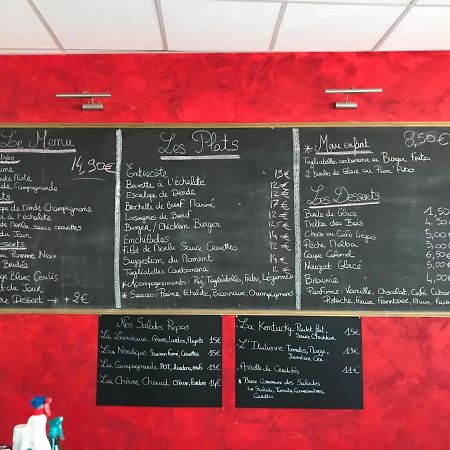 Le Menu
14,90€
de Campagnarde
de Dinde Champignons
à l'échalote
de Merlu sauce crevettes
du Jour
ou Pomme Noix
Brulée
Blanc Coulis
du Jour
Dessert → + 2€
Les Plats
Entrecôte 19€
Bavette à l'échalote
Escalope de Dinde 12€
Brochette de Bœuf Mariné 17€
Lasagnes de Bœuf 12€
Burger / Chicken Burger
Enchiladas
Filet de Merlu Sauce Crevettes
Suggestion du Moment 14€
Tagliatelles Carbonara 12€
* Accompagnements: Riz, Tagliatelles, Frites, Légumes
* Sauces: Poivre, Echalote, Béarnaise, Champignons
* Menu enfant 8,50€
Tagliatelles carbonara ou Burger Frites
2 boules de Glace ou Pom Potes
Les Desserts
Boule de Glace 1,50
Mots des Bois 4,50
Choco ou Café Liégeois 5,00
Pêche Melba 5,00
Coupe Colonel
Nougat Glacé 5,00
Brownie 4,00
Parfums: Vanille, Chocolat, Café, Citron
Pistache, Fraise, Framboise, Rhum-Raisin
Nos Salades Repas
La Landaise Gésiers, Lardons, Magrets 15€
La Nordique Saumon Fumé, Crevettes 15€
La Campagnarde PDT, Jambon, œufs 13€
La Chèvre Chaud Chèvre, Lardons 14€
La Kentucky Poulet Pané, 15€
Sauce Cheddar
L'Italienne Tomates, Mozza, 13€
Jambon Cru
Assiette de Crudités 11€
* Base Commune des Salades
Salade, Tomates, Concombres,
Carottes